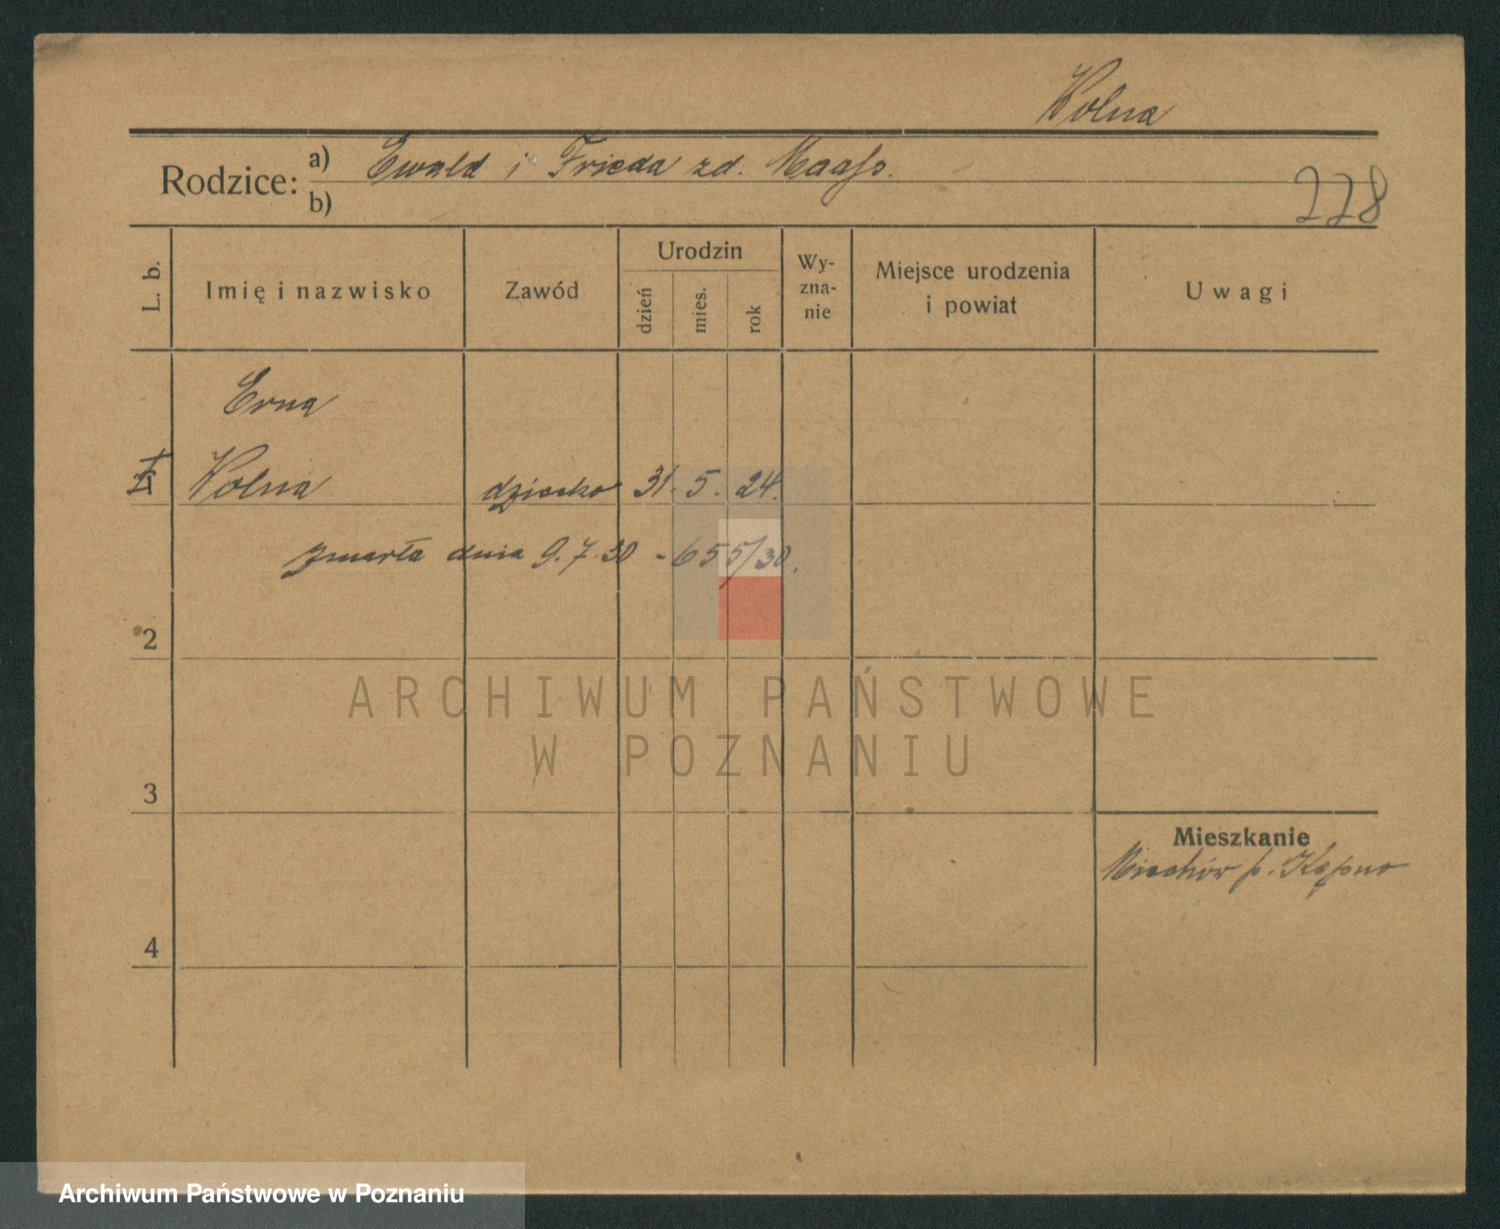 Wolna
Rodzice: a) Ewald i Frieda zd. Maaſs.
b)
228
L. b.
Imię i nazwisko
Zawód
Urodzin
dzień
mies.
rok
Wy-
zna-
nie
Miejsce urodzenia
i powiat
Uwagi
Erna
† Wolna dziecko 31. 5. 24.
zmarła dnia 9.7.30 - 655/30.
2
ARCHIWUM PAŃSTWOWE
W POZNANIU
3
Mieszkanie
Miechów p. Kępno
4
Archiwum Państwowe w Poznaniu